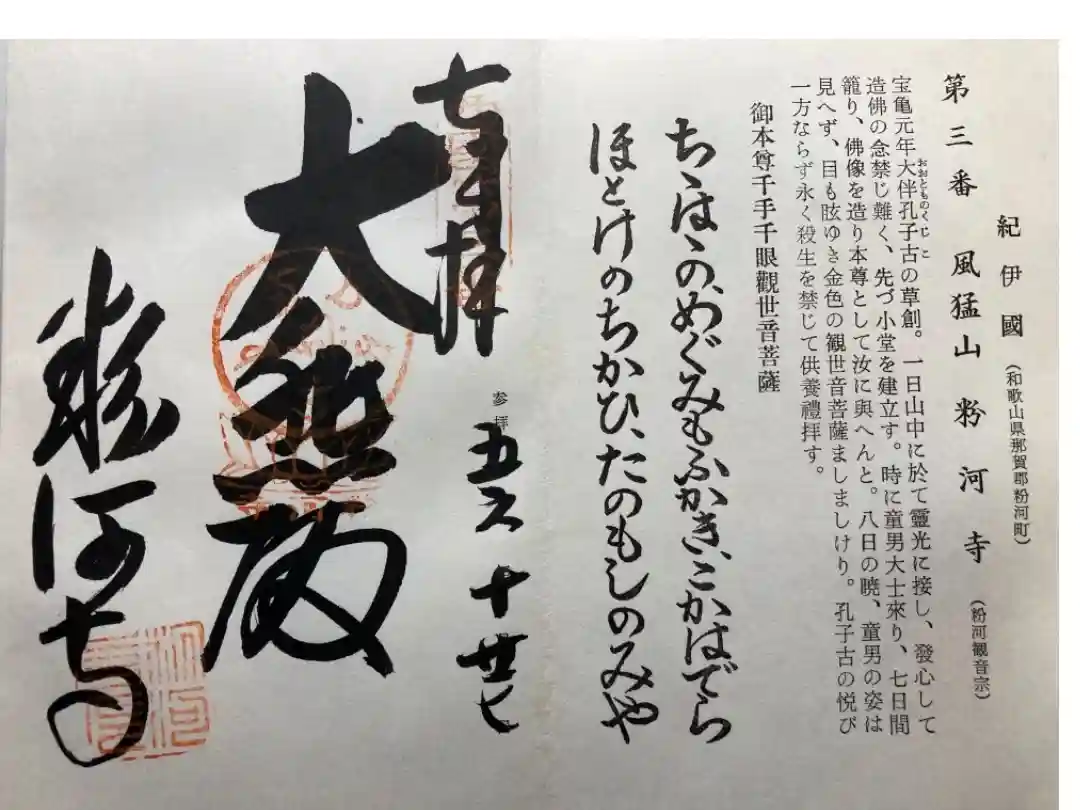 紀伊國(和歌山県那賀郡粉河町)
第三番 風猛山粉河寺(粉河観音宗)
宝亀元年大伴孔子古の草創。一日山中に於て靈光に接し、發心して
おおとものくじこ
造佛の念禁じ難く、先づ小堂を建立す。時に童男大士來り、七日間
籠り、佛像を造り本尊として汝に與へんと。八日の暁、童男の姿は
見へず、目も眩ゆき金色の観世音菩薩ましましけり。孔子古の悦び
一方ならず永く殺生を禁じて供養禮拝す。
御本尊千手千眼觀世音菩薩
ちゝはゝの、めぐみもふかき、こかはでら
ほとけのちかひ、たのもしのみや
奉拝
参拝
五六 十 廿七
大悲殿
粉河寺